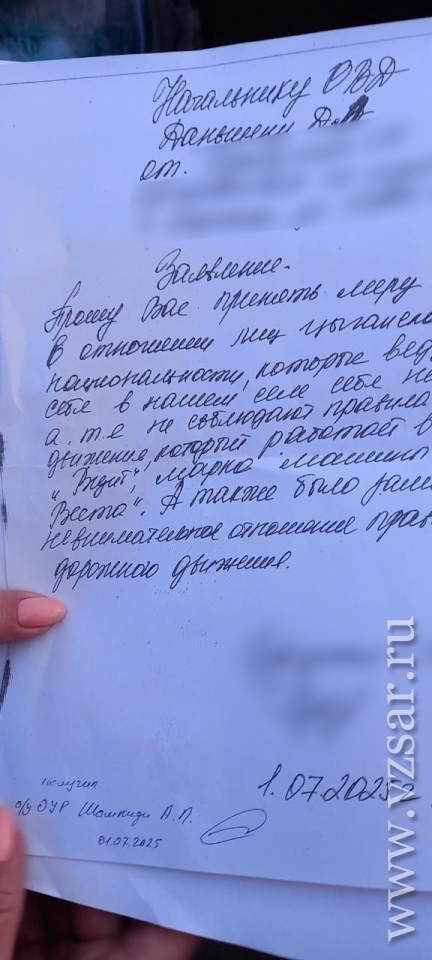 Начальнику ОВД
Даньшени Д.А
от.
Заявление.
Прошу Вас принять меру
в отношении лиц цыганско
национальности, которые вед
себя в нашем селе себе не
а, т.е не соблюдают правила
движение, который работает в
"Видит", марка машины
Веста". А также было заме
невнимательное отношение прав
дорожного движения.
1.07.2025г
получил
о/у ОУР А.П.
01.07.2025
www.vzsar.ru